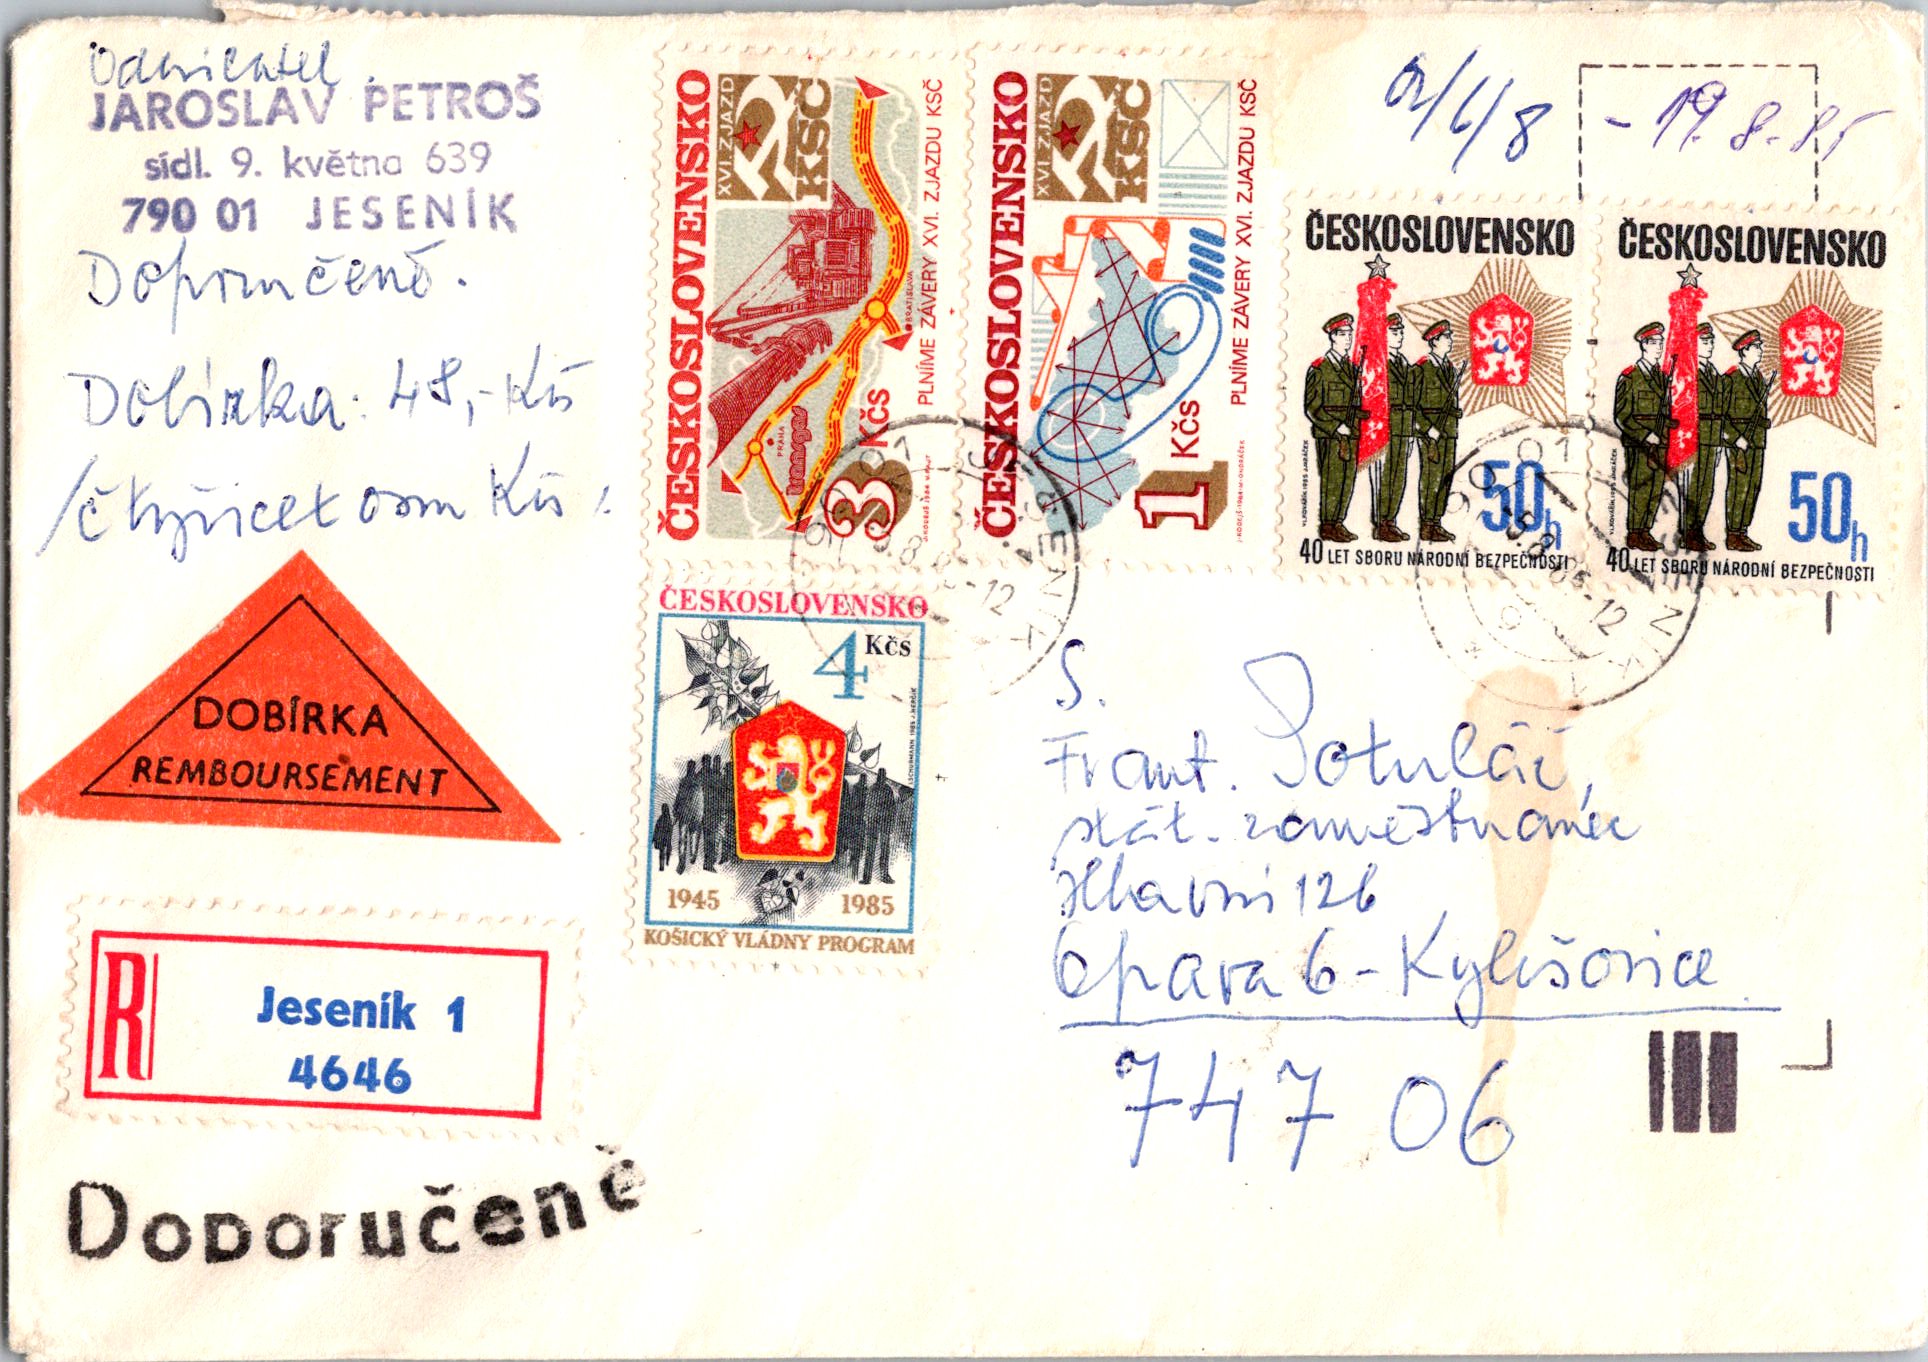 Odesílatel
JAROSLAV PETROŠ
sídl. 9. května 639
790 01 JESENÍK
Doporučeně.
Dobírka: 48,- Kčs
/čtyřicet osm Kčs/
DOBÍRKA
REMBOURSEMENT
R
Jeseník 1
4646
Doporučeně
ČESKOSLOVENSKO
XVI. ZJAZD
KSČ
PLNÍME ZÁVERY XVI. ZJAZDU KSČ
BRATISLAVA
PRAHA
3 Kčs
ČESKOSLOVENSKO
XVI. ZJAZD
KSČ
PLNÍME ZÁVERY XVI. ZJAZDU KSČ
1 Kčs
- 19. 8. 85
ČESKOSLOVENSKO
50h
40 LET SBORU NÁRODNÍ BEZPEČNOSTI
ČESKOSLOVENSKO
50h
40 LET SBORU NÁRODNÍ BEZPEČNOSTI
ČESKOSLOVENSKO
4 Kčs
1945 1985
KOŠICKÝ VLÁDNY PROGRAM
S.
Frant. Potuláč,
stát. zaměstnanec
Hlavní 126
Opava 6 - Kylešovice
747 06